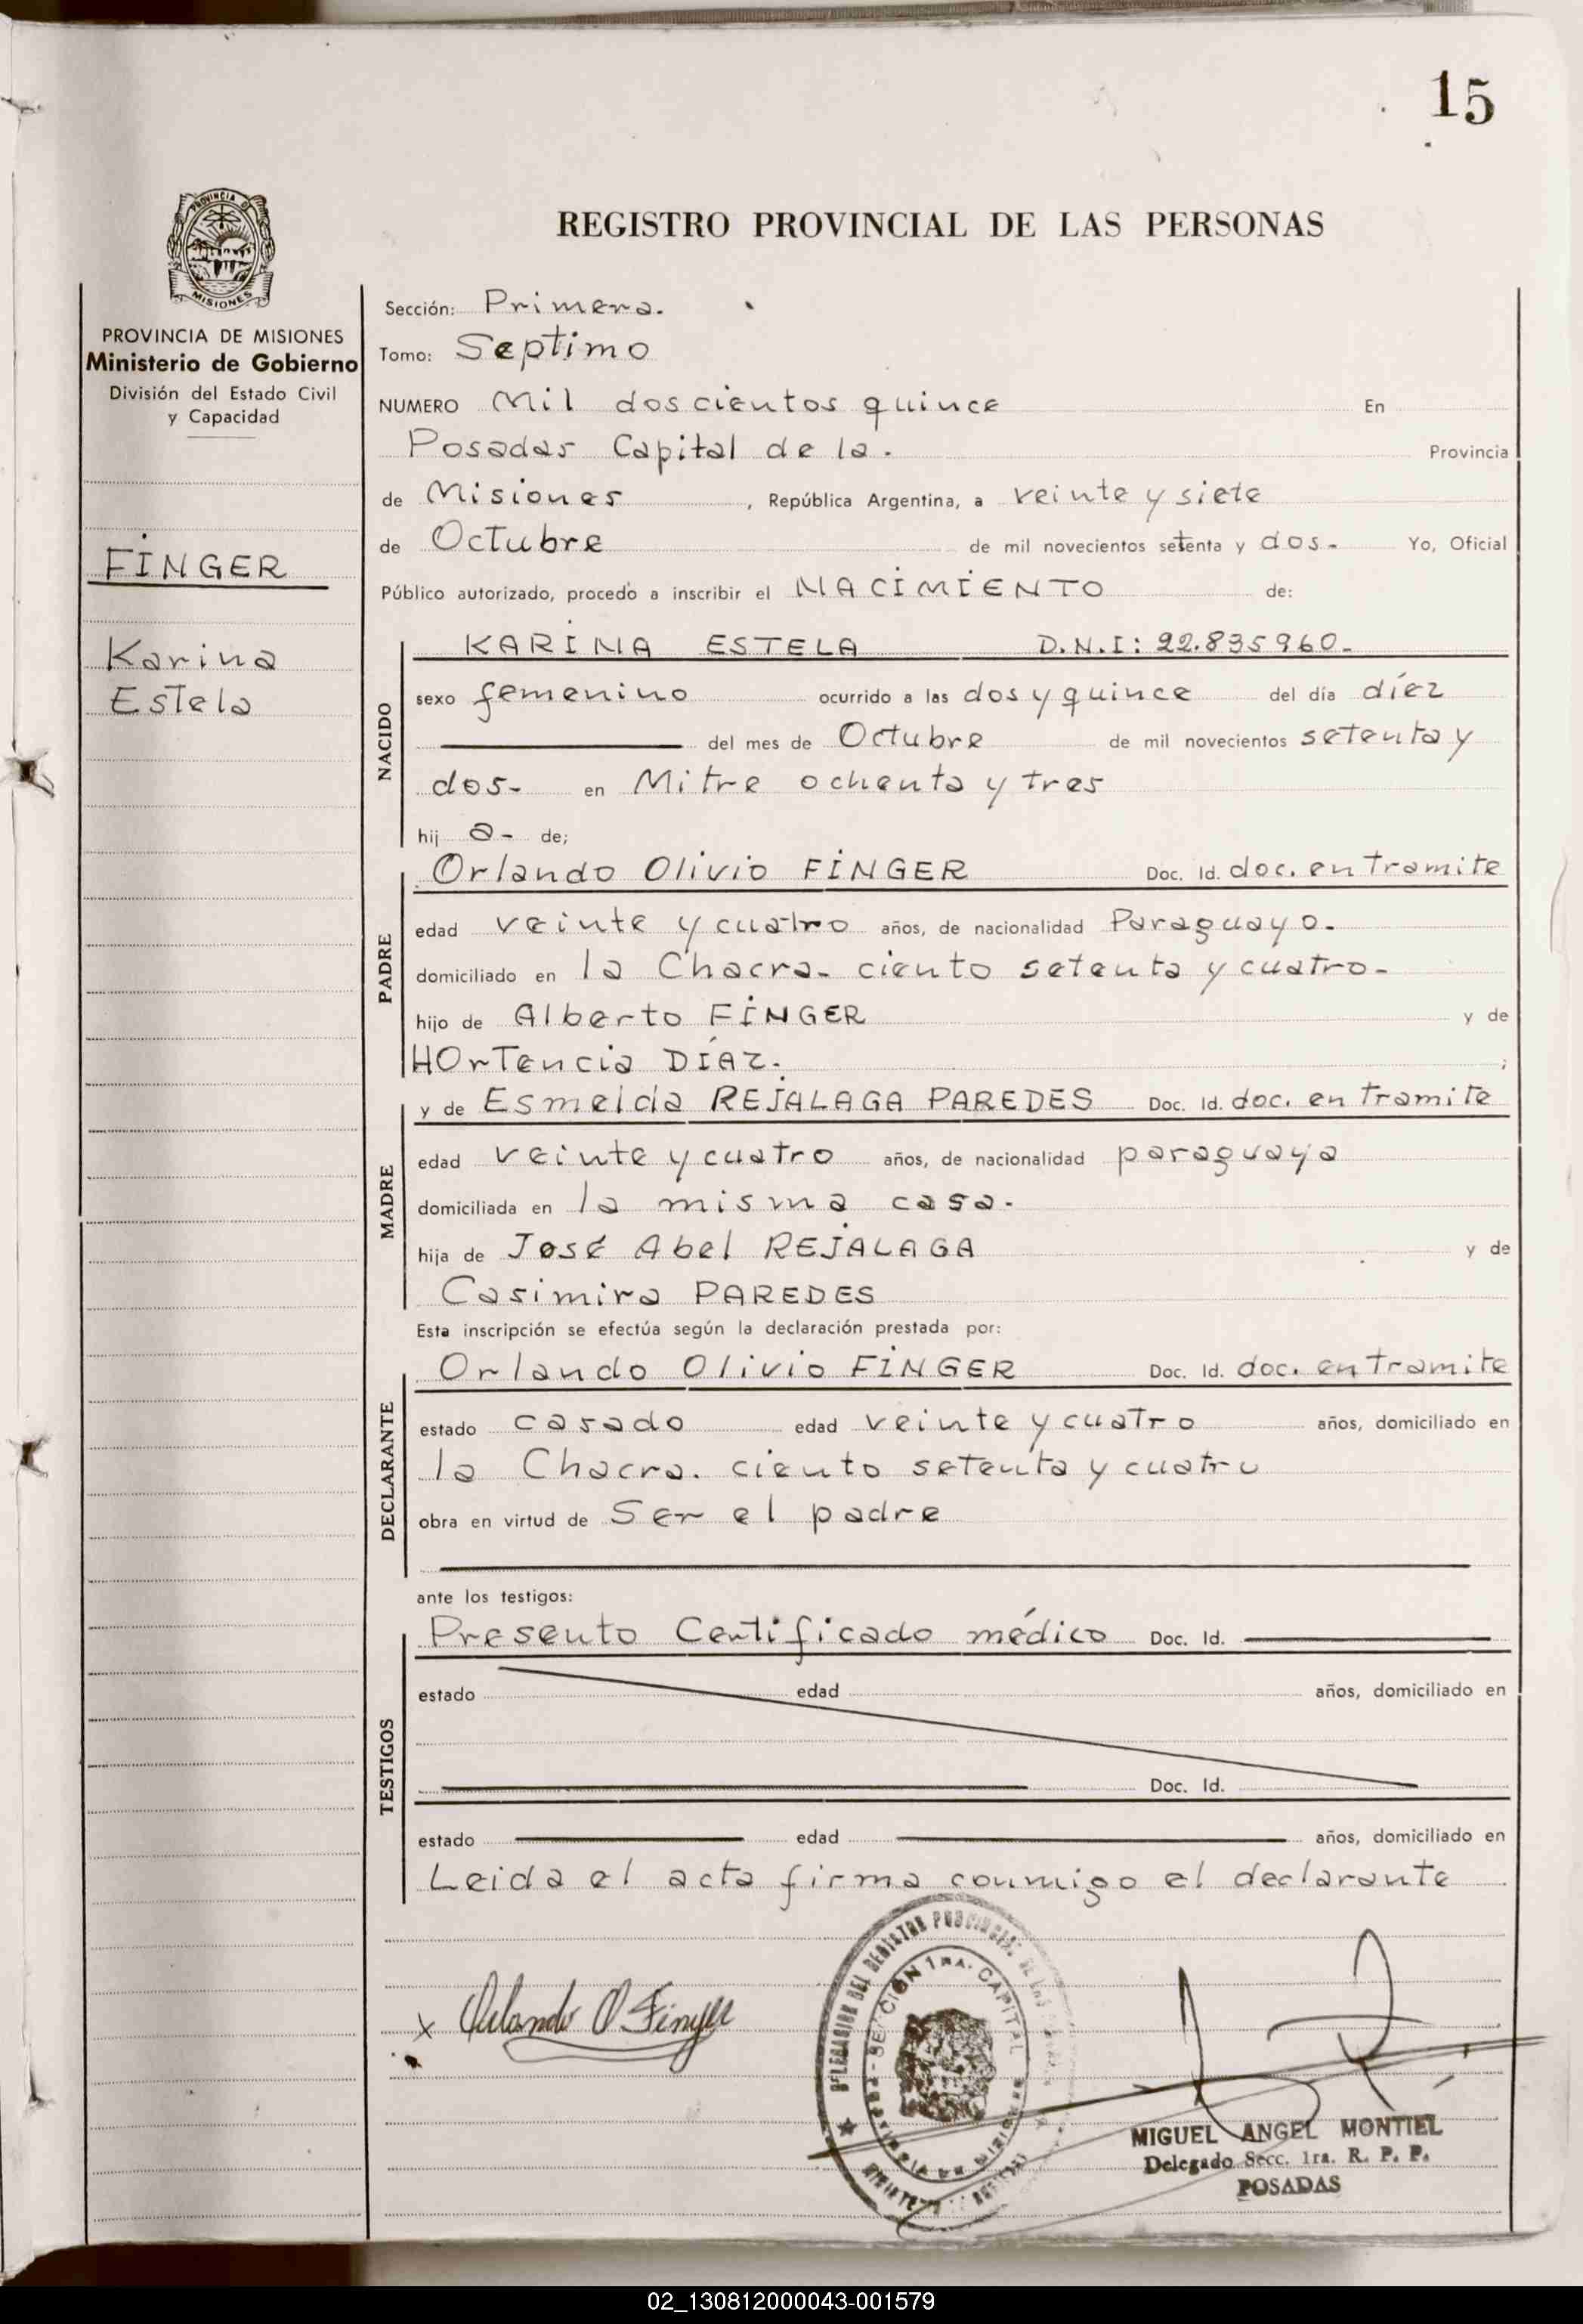 15
PROVINCIA DE
MISIONES
PROVINCIA DE MISIONES
Ministerio de Gobierno
División del Estado Civil
y Capacidad
FINGER
Karina
Estela
REGISTRO PROVINCIAL DE LAS PERSONAS
Sección: Primera.
Tomo: Septimo
NUMERO Mil doscientos quince En
Posadas Capital de la. Provincia
de Misiones, República Argentina, a veinte y siete
de Octubre de mil novecientos setenta y dos- Yo, Oficial
Público autorizado, procedo a inscribir el NACIMIENTO de:
NACIDO
KARINA ESTELA D.N.I: 22.835960-
sexo femenino ocurrido a las dos y quince del día díez
del mes de Octubre de mil novecientos setenta y
dos- en Mitre ochenta y tres
hij a- de;
PADRE
Orlando Olivio FINGER Doc. Id. doc. en Tramite
edad veinte y cuatro años, de nacionalidad Paraguayo-
domiciliado en la Chacra- ciento setenta y cuatro-
hijo de Alberto FINGER y de
HOrTencia DÍAZ. ;
MADRE
y de Esmelda REJALAGA PAREDES Doc. Id. doc. en Tramite
edad veinte y cuatro años, de nacionalidad paraguaya
domiciliada en la misma casa.
hija de José Abel REJALAGA y de
Casimira PAREDES
Esta inscripción se efectúa según la declaración prestada por:
DECLARANTE
Orlando Olivio FINGER Doc. Id. doc. en Tramite
estado casado edad veinte y cuatro años, domiciliado en
la Chacra. ciento setenta y cuatro
obra en virtud de Ser el padre
ante los testigos:
TESTIGOS
Presento Certificado médico Doc. Id.
estado edad años, domiciliado en
Doc. Id.
estado edad años, domiciliado en
Leida el acta firma conmigo el declarante
x Orlando O Finger
DELEGACION DEL REGISTRO PROVINCIAL DE LAS
SECCION 1RA. CAPITAL
MIGUEL ANGEL MONTIEL
Delegado Secc. 1ra. R. P. P.
POSADAS
02_130812000043-001579